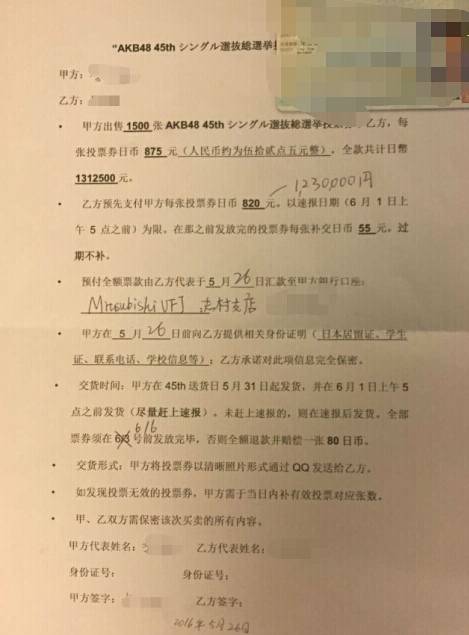 “AKB48 45th シングル選抜総選挙
甲方：
乙方：
• 甲方出售 1500 张 AKB48 45th シングル選抜総選挙 乙方，每
张投票券日币 875 元（人民币约为伍拾贰点五元整），全款共计日币
1312500 元。
1,230,000円
• 乙方预先支付甲方每张投票券日币 820 元。以速报日期（6 月 1 日上
午 5 点之前）为限。在那之前发放完的投票券每张补交日币 55 元。过
期不补。
• 预付全额票款由乙方代表于 5 月 26 日汇款至甲方银行口座：
Mitsubishi UFJ 志村支店
• 甲方在 5 月 26 日前向乙方提供相关身份证明（日本居留证、学生
证、联系电话、学校信息等）；乙方承诺对此项信息完全保密。
• 交货时间：甲方在 45th 送货日 5 月 31 日起发货，并在 6 月 1 日上午 5
点之前发货（尽量赶上速报）。未赶上速报的，则在速报后发货。全部
票券须在 6/6 号前发放完毕，否则全额退款并赔偿一张 80 日币。
• 交货形式：甲方将投票券以清晰照片形式通过 QQ 发送给乙方。
• 如发现投票无效的投票券，甲方需于当日内补有效投票对应张数。
• 甲、乙双方需保密该次买卖的所有内容。
甲方代表姓名： 乙方代表姓名：
身份证号： 身份证号：
甲方签字： 乙方签字：
2016年5月26日